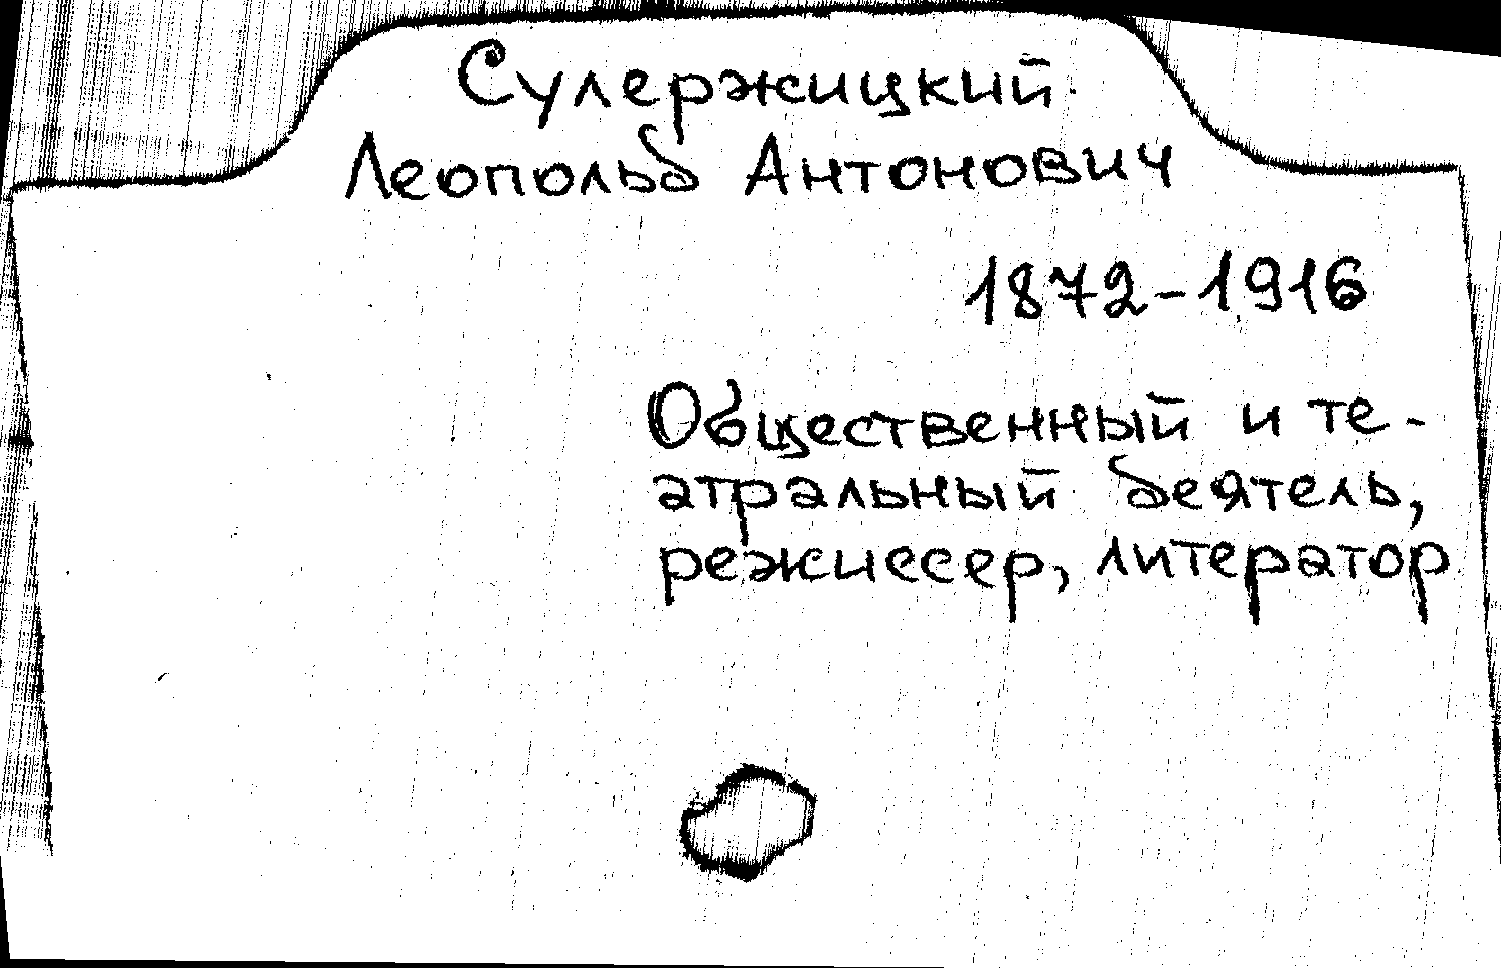 Сулержицкий
Леопольд Антонович
1872-1916
Общественный и те-
атральный деятель,
режиссер, литератор